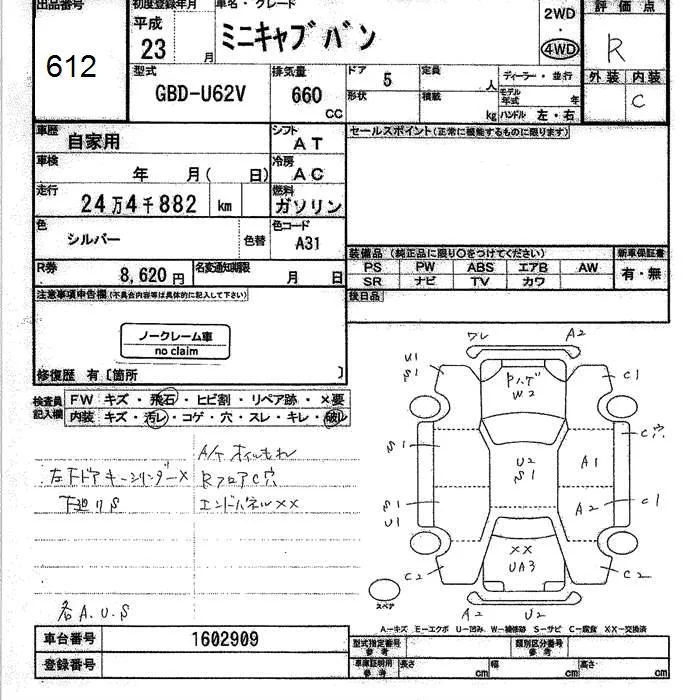 出品番号 初度登録年月 車名・グレード 2WD 評価点
612 平成 23 月 ミニキャブバン ・ 4WD R
型式 排気量 ドア 定員 ディーラー・並行 外装 内装
GBD-U62V 660 CC 5 人 モデル年式 年 C
形状 積載 kg ハンドル 左・右
車歴 自家用 シフト AT セールスポイント(正常に機能するものに限ります)
車検 年 月( 日) 冷房 AC
走行 24万4千882 km 燃料 ガソリン
色 シルバー 色替 色コード A31
装備品 (純正品に限り○をつけてください) 新車保証書
PS PW ABS エアB AW 有・無
SR ナビ TV カワ
R券 8,620円 名変通知期限 月 日
後日品
注意事項申告欄(不具合内容等は具体的に記入して下さい)
ノークレーム車
no claim
修復歴 有〔箇所 〕
検査員記入欄 FW キズ・飛石・ヒビ割・リペア跡・×要
内装 キズ・汚レ・コゲ・穴・スレ・キレ・破ル
A/T オイルもれ
左Fドア キーシリンダー× RフロアC穴
下廻りS エンドパネル××
各A.U.S
ワレ A2
U1
S1 C1
W2
S1 U2 S1 A1 C穴
S1
U1 A2 C1
××
UA3
C2 C2
スペア A2 U2
A—キズ E—エクボ U—凹み W—補修跡 S—サビ C—腐食 XX—交換済
車台番号 1602909 型式指定番号 参考 類別区分番号 参考
登録番号 車庫証明用 参考 長さ cm 幅 cm 高さ cm